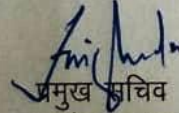 प्रमुख सचिव